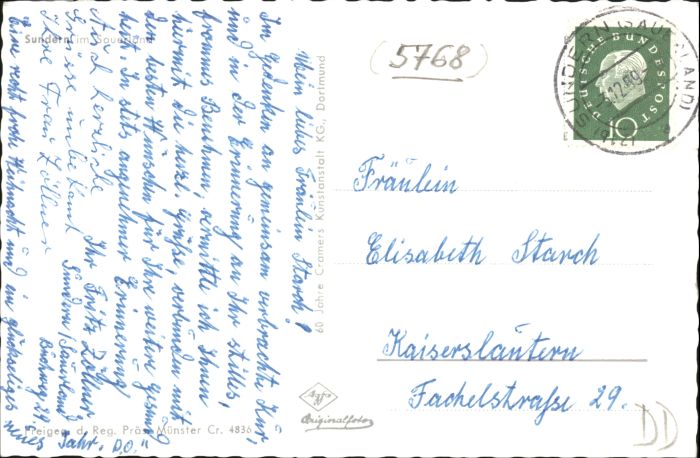 Sundern im Sauerland
Mein liebes Fräulein Starch!
In Gedenken an gemeinsam verbrachte Kur,
und in der Erinnerung an Ihr stilles,
Benehmen, vermittle ich Ihnen
hiermit die herzl. Grüße, verbunden mit
den besten Wünschen für Ihre weitere Gesund-
heit. In stets angenehmer Erinnerung!
Ihr Fritz Zöllner
Sundern/Sauerland
29
Auch herzliche
Grüsse unbekannt
Ihre Frau Zöllner
Eine recht frohe Weihnacht und ein glückseliges
neues Jahr. D.O."
Freigeg. d. Reg. Präs. Münster Cr. 4836
60 Jahre Cramers Kunstanstalt KG., Dortmund
Agfa
Originalfoto
(5768)
DEUTSCHE BUNDESPOST
10
SUNDERN (SAUERLAND)
Fräulein
Elisabeth Starch
Kaiserslautern
Fachelstraße 29.
DD